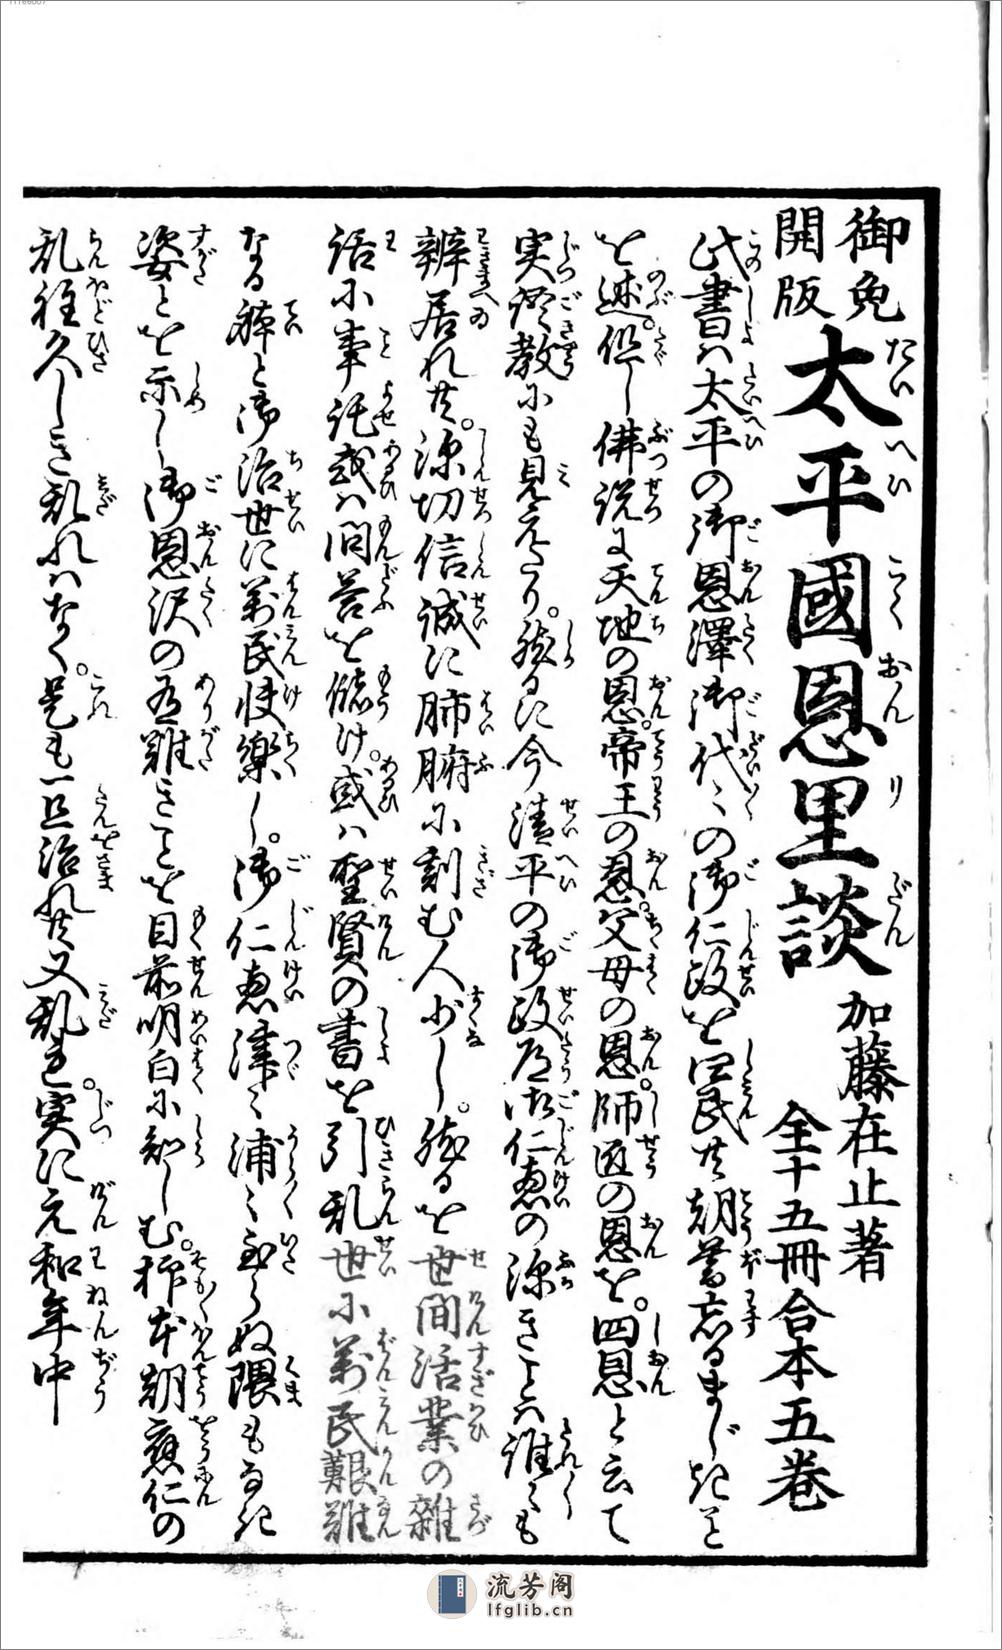 御免開版 太平國恩里談 加藤在止著 全十五冊合本五巻
たいへいこくおんりだん
此書ハ太平の御恩澤御代〻の御仁政を四民共朝暮忘るまじきこと
を述。但し佛説に天地の恩。帝王の恩。父母の恩。師匠の恩を。四恩と云て
実語教にも見えたり。然るに今清平の御政道御仁恵の深きことハ誰〻も
辨居れ共。深切信誠に肺腑に刻む人少し。然るを世間活業の雜
話に事託或ハ問答を儲け。或ハ聖賢の書を引乱世に萬民艱難
なる体と御治世に萬民快樂し。御仁恵津〻浦〻至らぬ隈もなき
姿とを示し御恩沢の有難きことを目前明白に知しむ。抑本朝應仁の
乱程久しき乱れハなく。是も一旦治れ共又乱る。実に元和年中
流芳阁
lfglib.cn